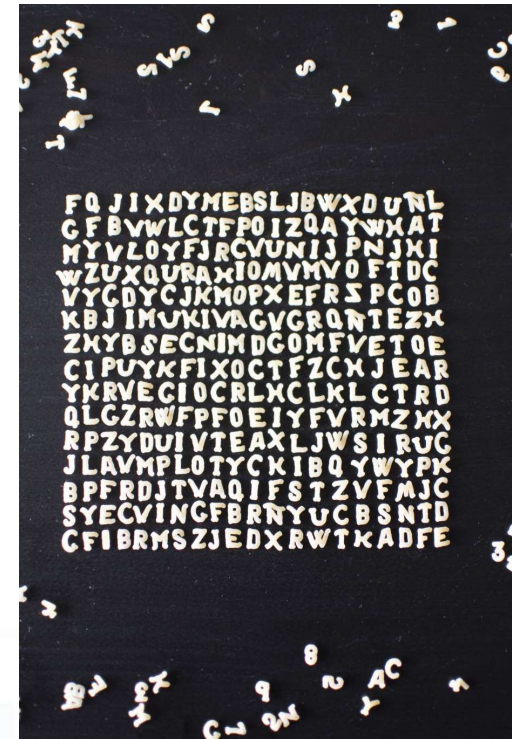 FQJIXDYMEBSLJBWXDUNL
GFBVWLCTFPOIZQAYWHAT
MYVLOYFJRCVUNIJPNJHI
WZUXQURAHIOMVMVOFTDC
VYGDYCJKMOPXEFRSPCOB
KBJIMUKIVAGVGRQNTEZH
ZHYBSECNIMDGOMFVETOE
CIPUYKFIXOCTFZCHJEAR
YKRVEGIOCRLHCLKLCTRD
QLGZRWFPFOEIYFVRMZHX
RPZYDUIVTEAXLJWSIRUG
JLAVMPLOTYCKIBQYWYPK
BPFRDJTVAQIFSTZVFMJC
SYECVINGFBRNYUCBSNTD
CFIBRMSZJEDXRWTKADFE